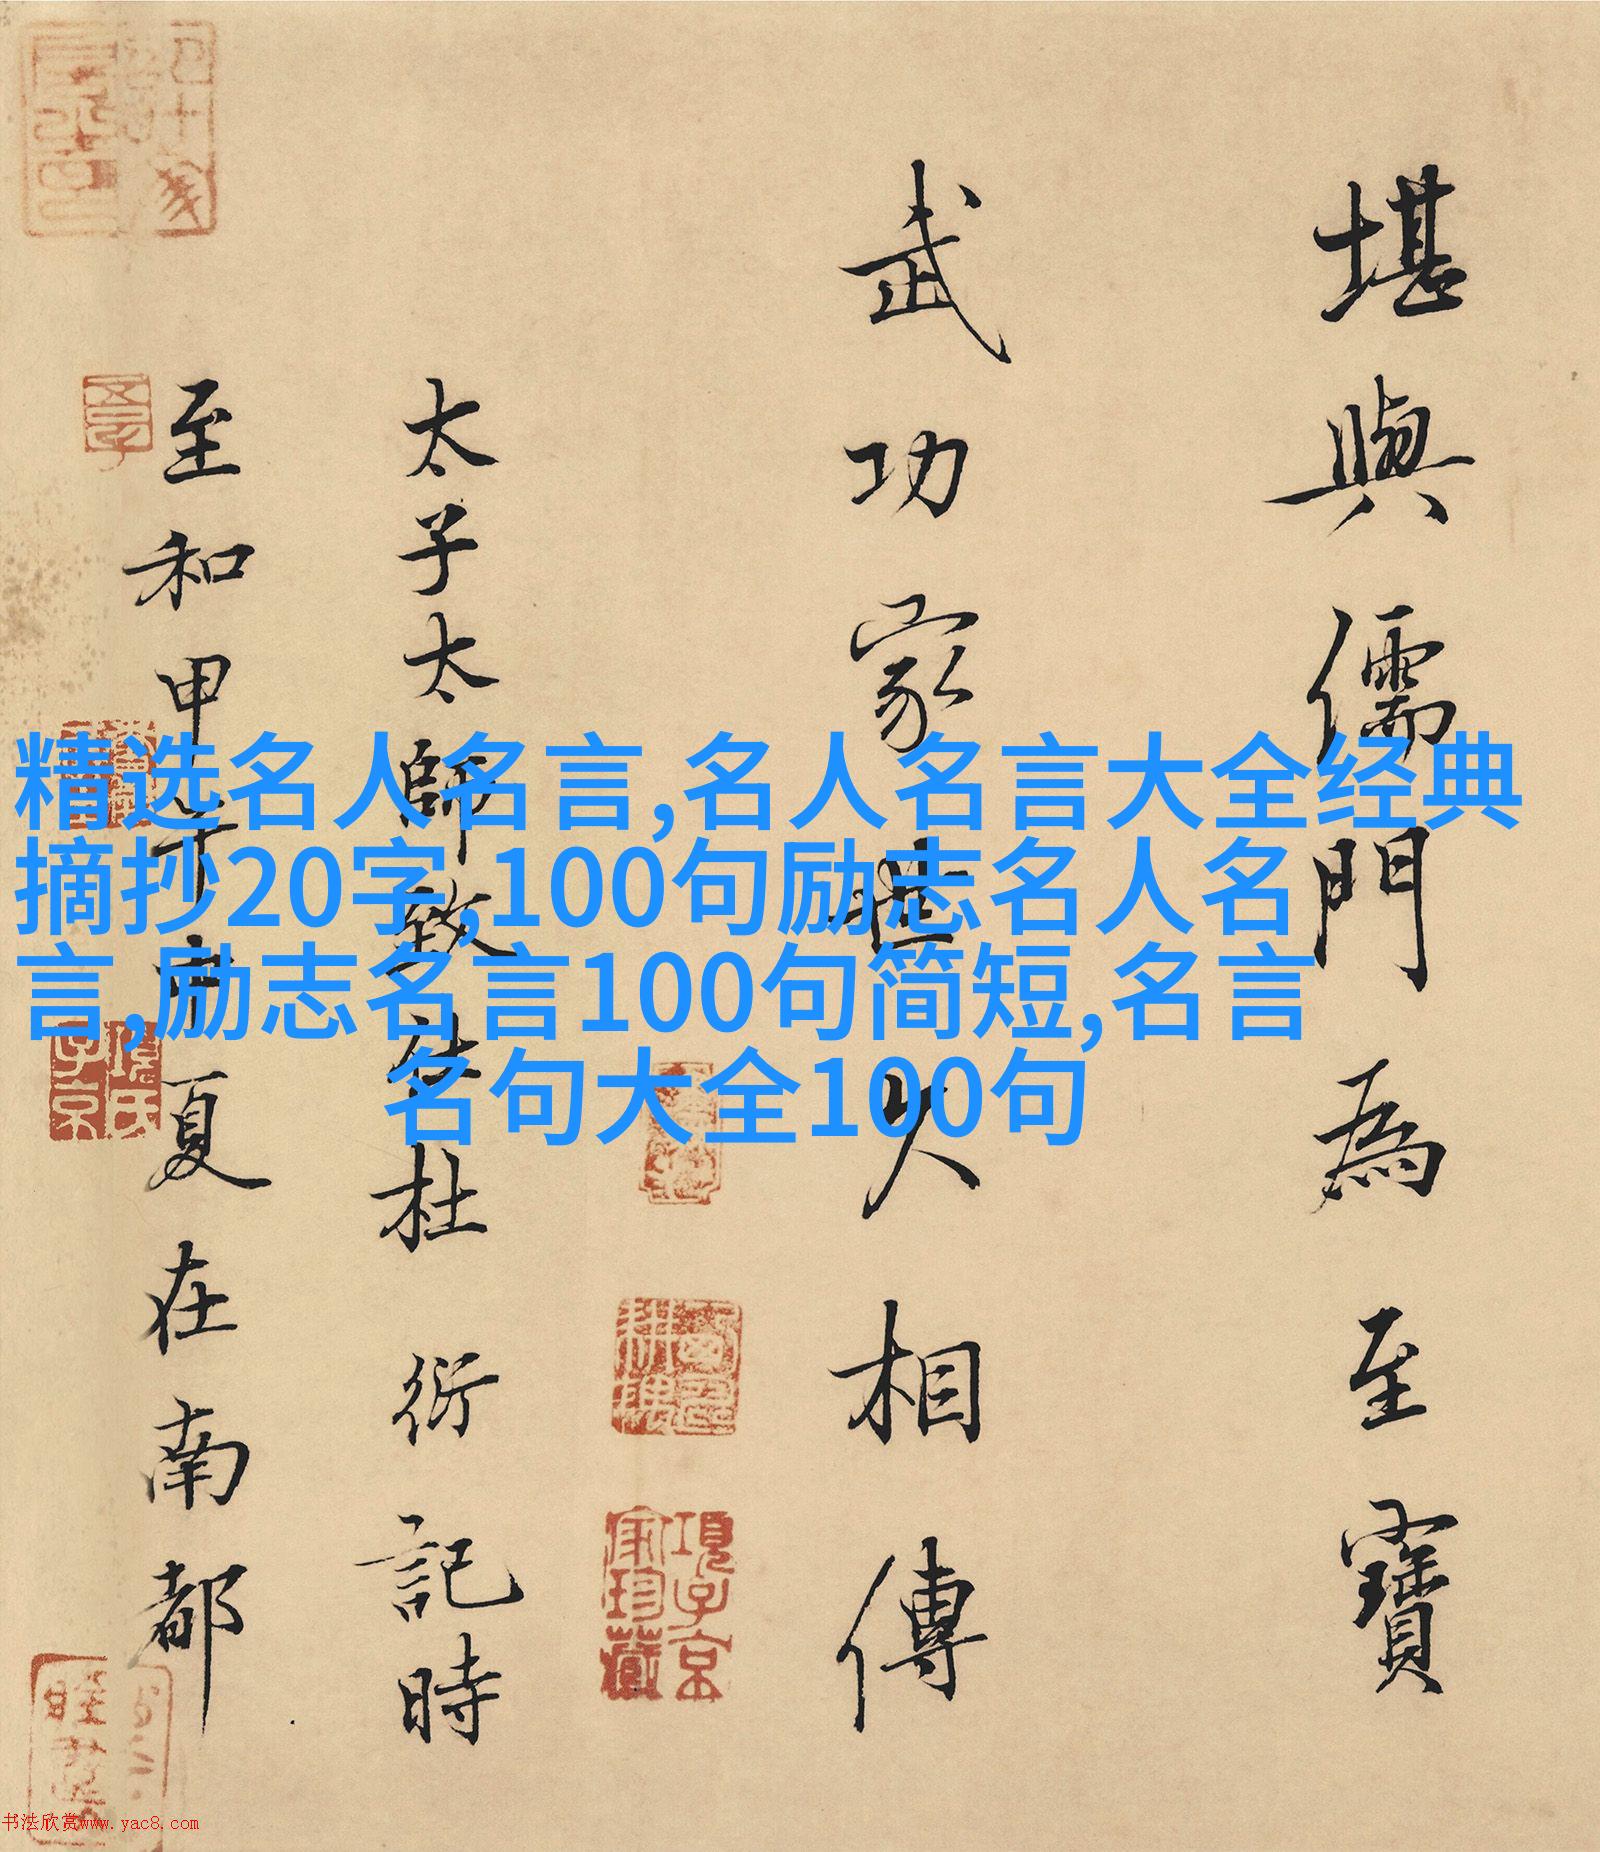 堪與儒門為至寶
武功家世久相傳
項子京家珍藏
太子太師致仕杜衍記時
至和甲午中夏在南都
項氏子京
精选名人名言,名人名言大全经典
摘抄20字,100句励志名人名
言,励志名言100句简短,名言
名句大全100句
书法欣赏www.yac8.com